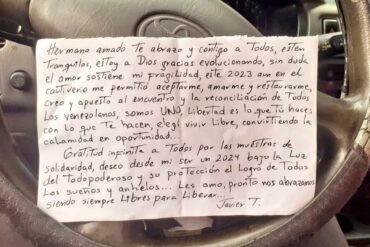 Hermano amado Te abrazo y contigo a Todos, esten
Tranquilos, estoy a Dios gracias evolucionando, sin duda
el amor sostiene mi fragilidad, este 2023 aun en el
cautiverio me permitió aceptarme, amarme y restaurarme,
creo y apuesto al encuentro y la reconciliación de Todos
Los venezolanos, somos UNO, Libertad es lo que Tú haces
con lo que Te hacen, elegí vivir Libre, convirtiendo la
calamidad en oportunidad...
Gratitud infinita a Todos por las muestras de
solidaridad, deseo desde mi ser un 2024 bajo la Luz
del Todopoderoso y su protección el Logro de Todos
Los sueños y anhelos... Les amo, pronto nos abrazamos
siendo siempre Libres para Liberar...
Javier T.